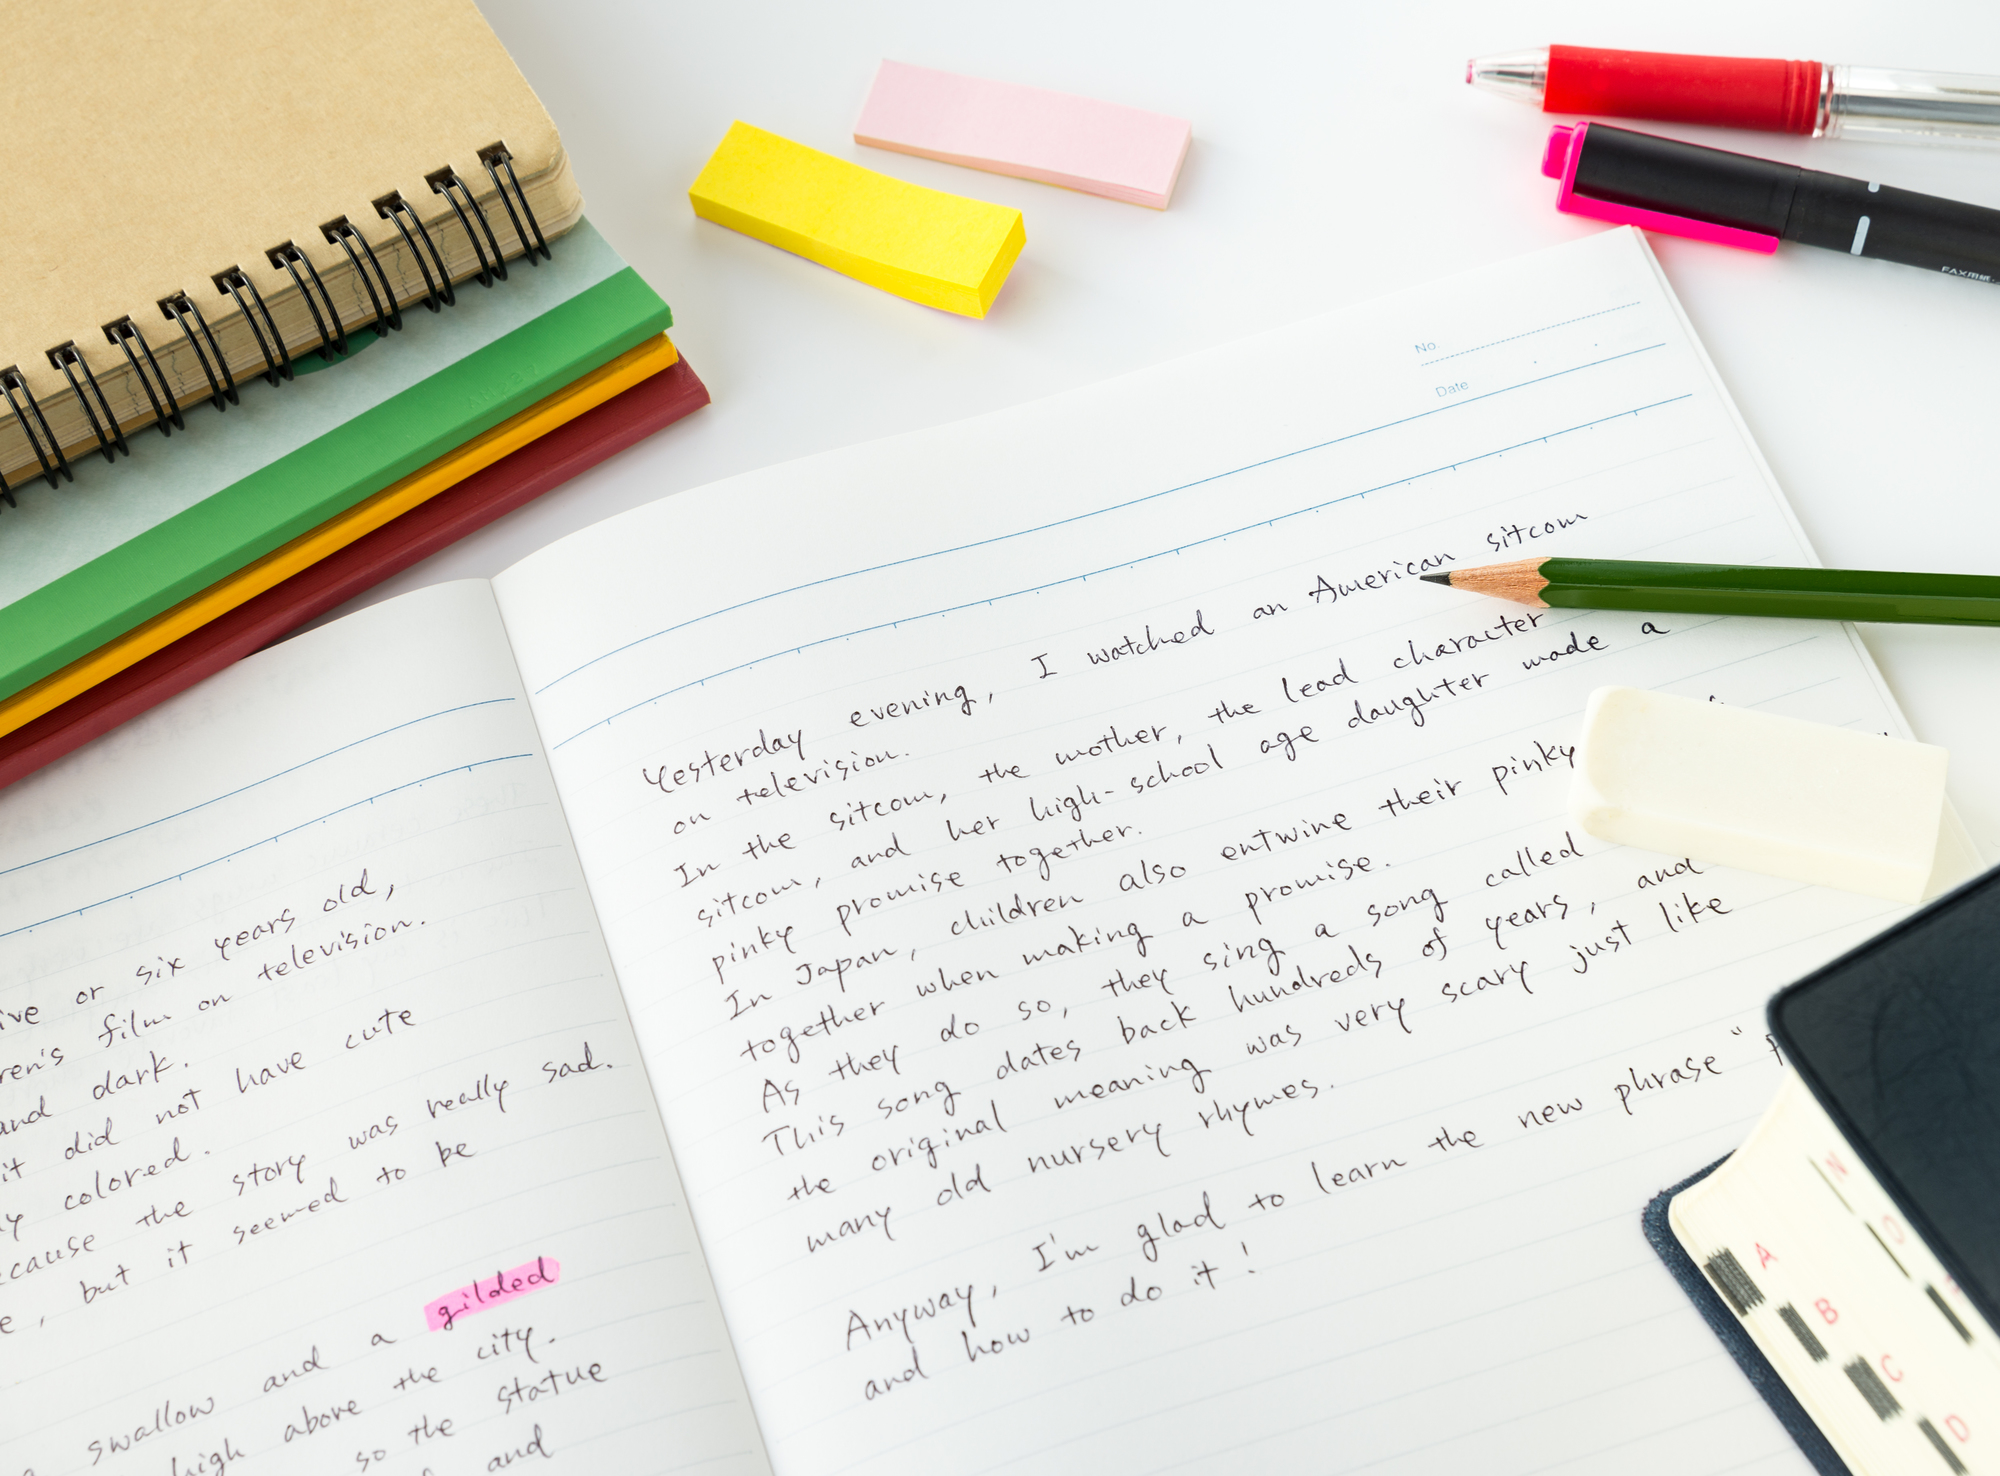 No.
Date
Yesterday evening, I watched an American sitcom
on television.
In the sitcom, the mother, the lead character
sitcom, and her high-school age daughter made a
pinky promise together.
In Japan, children also entwine their pinky
together when making a promise.
As they do so, they sing a song called
This song dates back hundreds of years, and
the original meaning was very scary just like
many old nursery rhymes.
Anyway, I'm glad to learn the new phrase "
and how to do it!
or six years old,
film on television.
and dark.
it did not have cute
colored.
the story was really sad.
, but it seemed to be
swallow and a gilded
high above the city.
so the statue
and
A
B
C
D
N